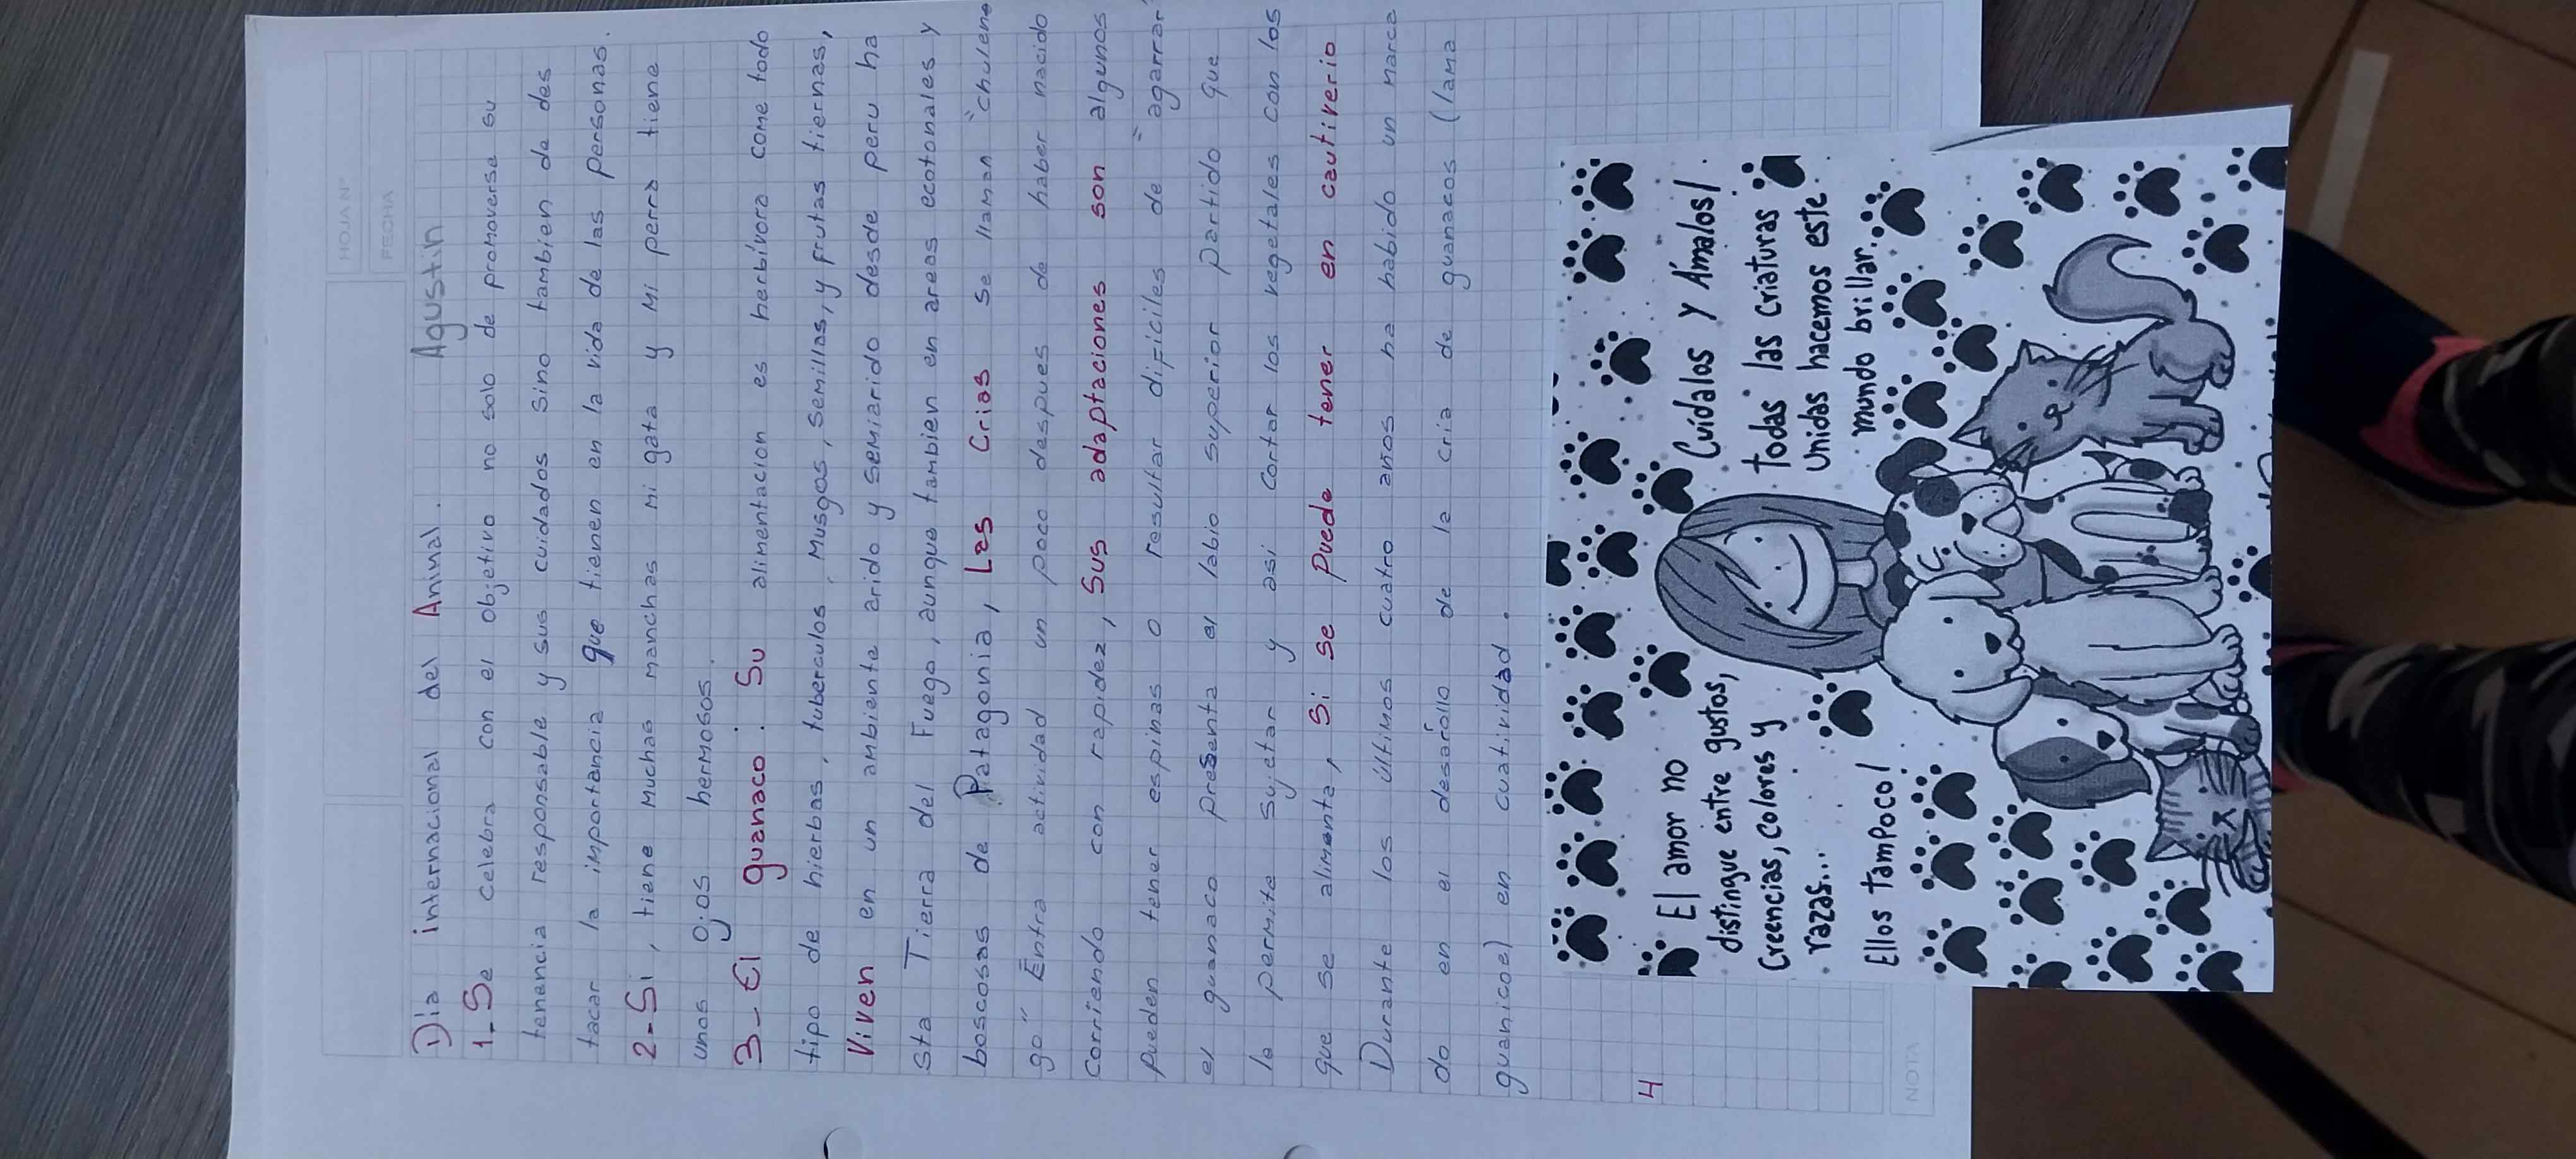 HOJA N°
FECHA
Agustin
Dia internacional del Animal.
1-Se celebra con el objetivo no solo de promoverse su
tenencia responsable y sus cuidados sino tambien de des
tacar la importancia que tienen en la vida de las personas.
2-Si, tiene muchas manchas mi gata y mi perra tiene
unos ojos hermosos.
3-El guanaco: Su alimentacion es herbívora come todo
tipo de hierbas, tuberculos, Musgos, semillas, y frutas tiernas,
Viven en un ambiente arido y semiarido desde peru ha
sta Tierra del Fuego, aunque tambien en areas ecotonales y
boscosas de Patagonia, Las Crias se llaman "chulen
go" Entra actividad un poco despues de haber nacido
Corriendo con rapidez, Sus adaptaciones son algunos
pueden tener espinas o resultar dificiles de "agarrar"
el guanaco presenta el labio superior partido que
le permite sujetar y asi cortar los vegetales con los
que se alimenta, Si se puede tener en cautiverio
Durante los últimos cuatro años ha habido un marca
do en el desarollo de la cria de guanacos (lama
guanicoe) en cuatividad.
4
El amor no
distingue entre gustos,
Creencias, colores y
razas...
Ellos tampoco!
Cuídalos y Ámalos!
todas las criaturas
unidas hacemos este
mundo brillar.
NOTA